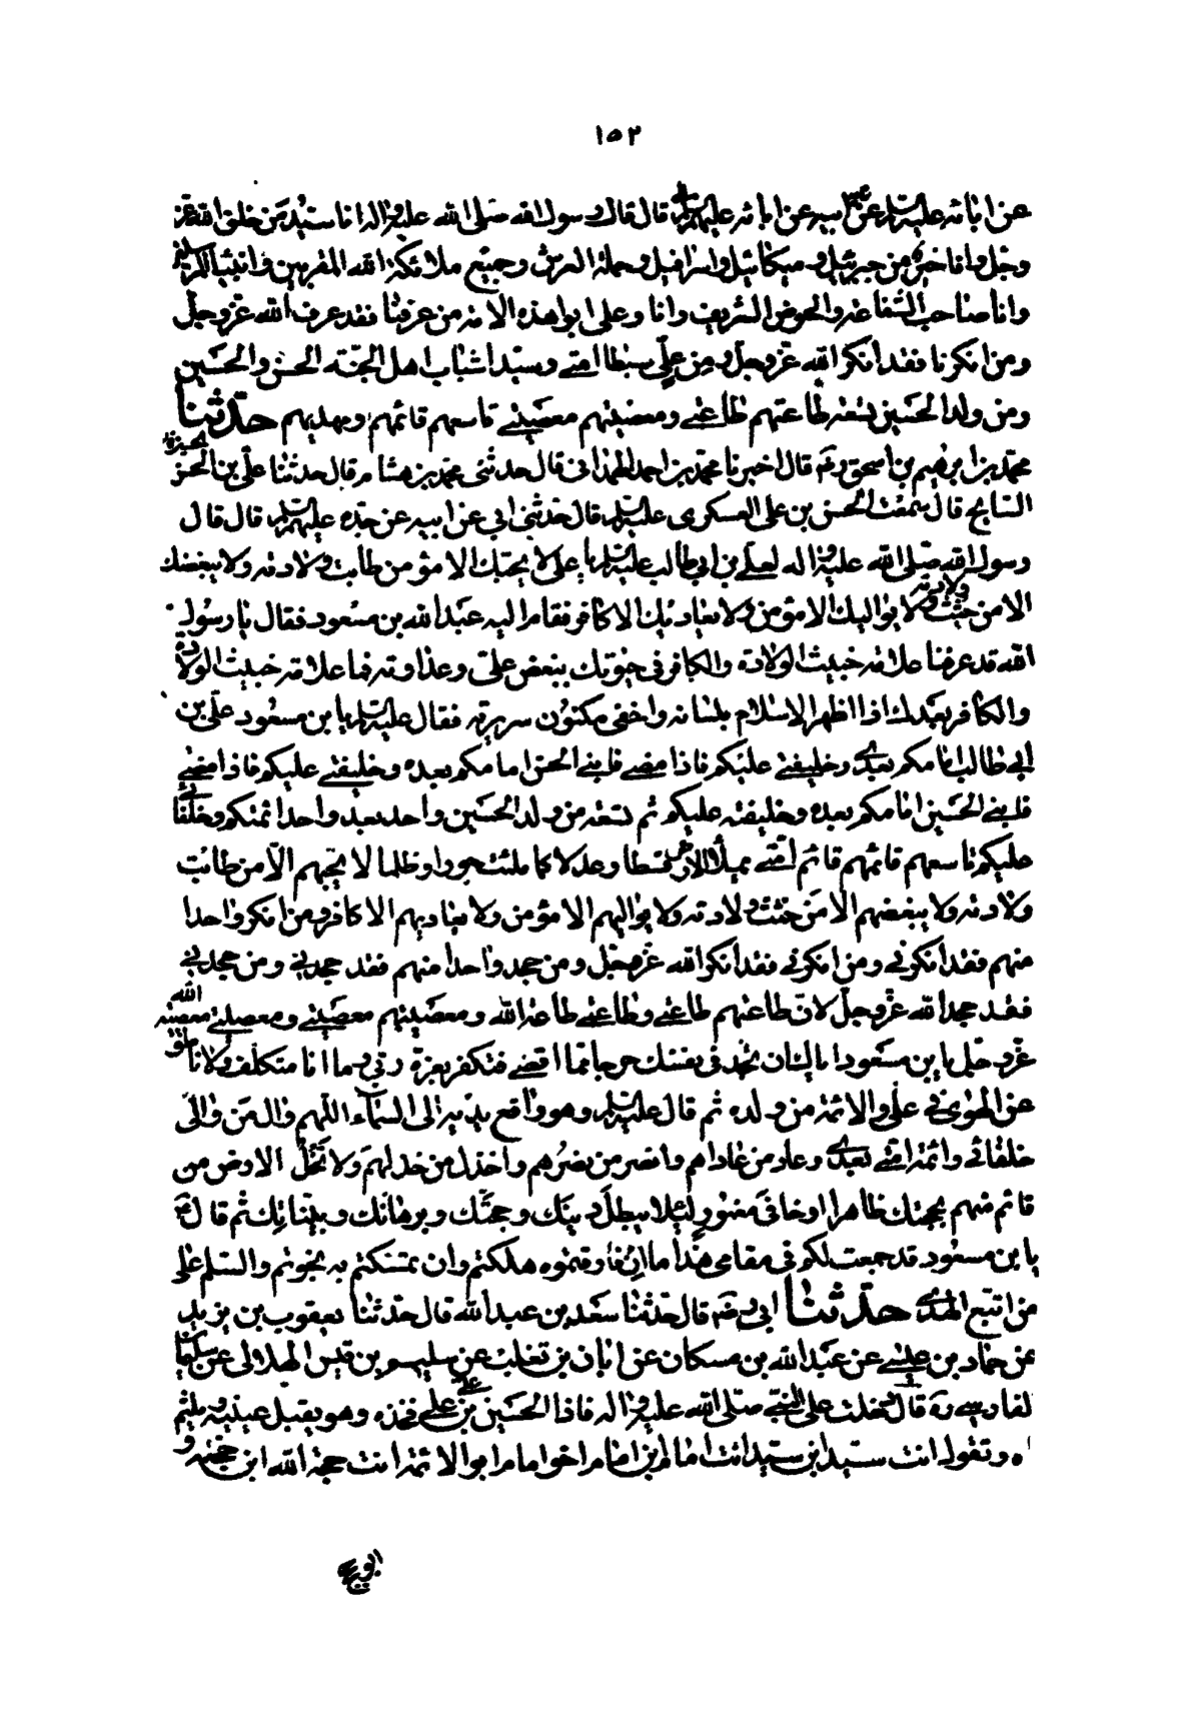 ١٥٢
عن ابائه عليهم السلم عن ابيه عن ابائه عليهم السلم قال قال رسول الله صلى الله عليه واله انا سيد من خلق الله عز
وجل وانا خير من جبرئيل وميكائيل واسرافيل وحملة العرش وجميع ملائكة الله المقربين وانبياء الله المرسلين
وانا صاحب الشفاعة والحوض الشريف وانا وعلى ابوا هذه الامة من عرفنا فقد عرف الله عز وجل
ومن انكرنا فقد انكر الله عز وجل ومن علي سبطا امتي وسيدا شباب اهل الجنة الحسن والحسين
ومن ولد الحسين تسعة طاعتهم طاعتي ومعصيتهم معصيتي تاسعهم قائمهم ومهديهم حدثنا
محمد بن ابرهيم بن اسحق رضه قال اخبرنا محمد بن احمد الهمدانى قال حدثنى محمد بن هشام قال حدثنا على بن الحسن
السايح قال سمعت الحسن بن على العسكرى عليه السلم قال حدثنى ابي عن ابيه عن جده عليهم السلم قال قال
رسول الله صلى الله عليه واله لعلي بن ابي طالب عليه السلم يا على لا يحبك الا مؤمن طابت ولادته ولا يبغضك
الا من خبثت ولادته ولا يواليك الا مؤمن ولا يعاديك الا كافر فقام اليه عبد الله بن مسعود فقال يا رسول
الله قد عرفنا علامة خبيث الولادة والكافر فى حيوتك ببغض على وعداوته فما علامة خبيث الولادة
والكافر بعدك اذا اظهر الاسلام بلسانه واخفى مكنون سريرته فقال عليه السلم يا بن مسعود على بن
ابي طالب امامكم بعدي وخليفتي عليكم فاذا مضى فابني الحسن امامكم بعده وخليفتي عليكم فاذا مضى
فابني الحسين امامكم بعده وخليفته عليكم ثم تسعة من ولد الحسين واحد بعد واحد ائمتكم وخلفائي
عليكم تاسعهم قائمهم قائم امتي يملأ الارض قسطا وعدلا كما ملئت جورا وظلما لا يحبهم الا من طابت
ولادته ولا يبغضهم الا من خبثت ولادته ولا يواليهم الا مؤمن ولا يعاديهم الا كافر ومن انكر واحدا
منهم فقد انكرني ومن انكرني فقد انكر الله عز وجل ومن جحد واحدا منهم فقد جحدني ومن جحدني
فقد جحد الله عز وجل لان طاعتهم طاعتي وطاعتي طاعة الله ومعصيتهم معصيتي ومعصيتي معصية الله
عز وجل يا بن مسعود اياك ان تجد فى نفسك حرجا مما اقضي فتكفر بعزة ربي وما انا متكلف ولا ناطق
عن الهوى في على والائمة من ولده ثم قال عليه السلم وهو رافع يديه الى السماء اللهم وال من والى
خلفائي وائمة امتي بعدي وعاد من عاداهم وانصر من نصرهم واخذل من خذلهم ولا تخل الارض من
قائم منهم بحجتك ظاهرا او خافى مغمور لئلا يبطل دينك وحجتك وبرهانك وبيناتك ثم قال
يا بن مسعود قد جمعت لكم فى مقامى هذا ما ان فارقتموه هلكتم وان تمسكتم به نجوتم والسلم على
من اتبع الهدى حدثنا ابي رضه قال حدثنا سعد بن عبد الله قال حدثنا يعقوب بن يزيد
عن حماد بن عيسى عن عبد الله بن مسكان عن ابان بن تغلب عن سليم بن قيس الهلالى عن سلمان
الفارسي ره قال دخلت على النبي صلى الله عليه واله فاذا الحسين بن علي على فخذه وهو يقبل عينيه ويلثم
اه وتقول انت سيد ابن سيد انت امام ابن امام اخو امام ابو الائمة انت حجة الله ابن حجته و
ابو حجج